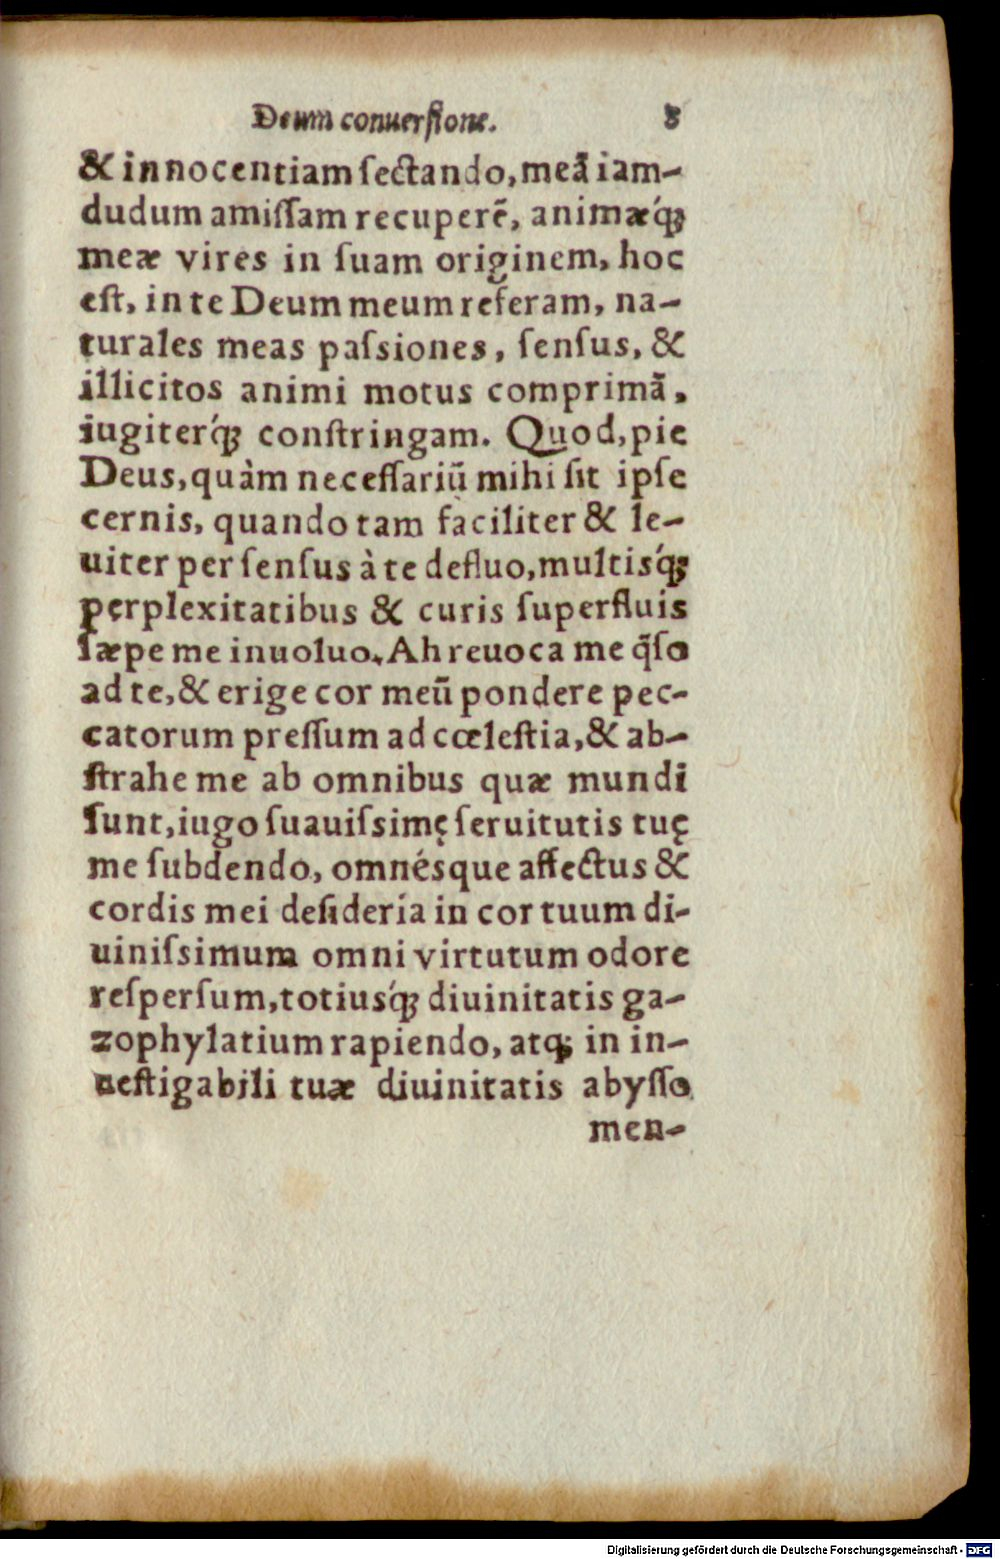 Deum conuerſione. 8
& innocentiam ſectando, meā iam-
dudum amiſſam recuperē, animæq́;
meæ vires in ſuam originem, hoc
eſt, in te Deum meum referam, na-
turales meas paſsiones, ſenſus, &
illicitos animi motus comprimā,
iugiterq́; conſtringam. Quod, pie
Deus, quàm neceſſariū mihi ſit ipſe
cernis, quando tam faciliter & le-
uiter per ſenſus à te defluo, multisq́;
perplexitatibus & curis ſuperfluis
ſæpe me inuoluo. Ah reuoca me q̄ſo
ad te, & erige cor meū pondere pec-
catorum preſſum ad cœleſtia, & ab-
ſtrahe me ab omnibus quæ mundi
ſunt, iugo ſuauiſsimę ſeruitutis tuę
me ſubdendo, omnésque affectus &
cordis mei deſideria in cor tuum di-
uiniſsimum omni virtutum odore
reſperſum, totiusq́; diuinitatis ga-
zophylatium rapiendo, atq; in in-
ueſtigabili tuæ diuinitatis abyſſo
men-
Digitalisierung gefördert durch die Deutsche Forschungsgemeinschaft - DFG